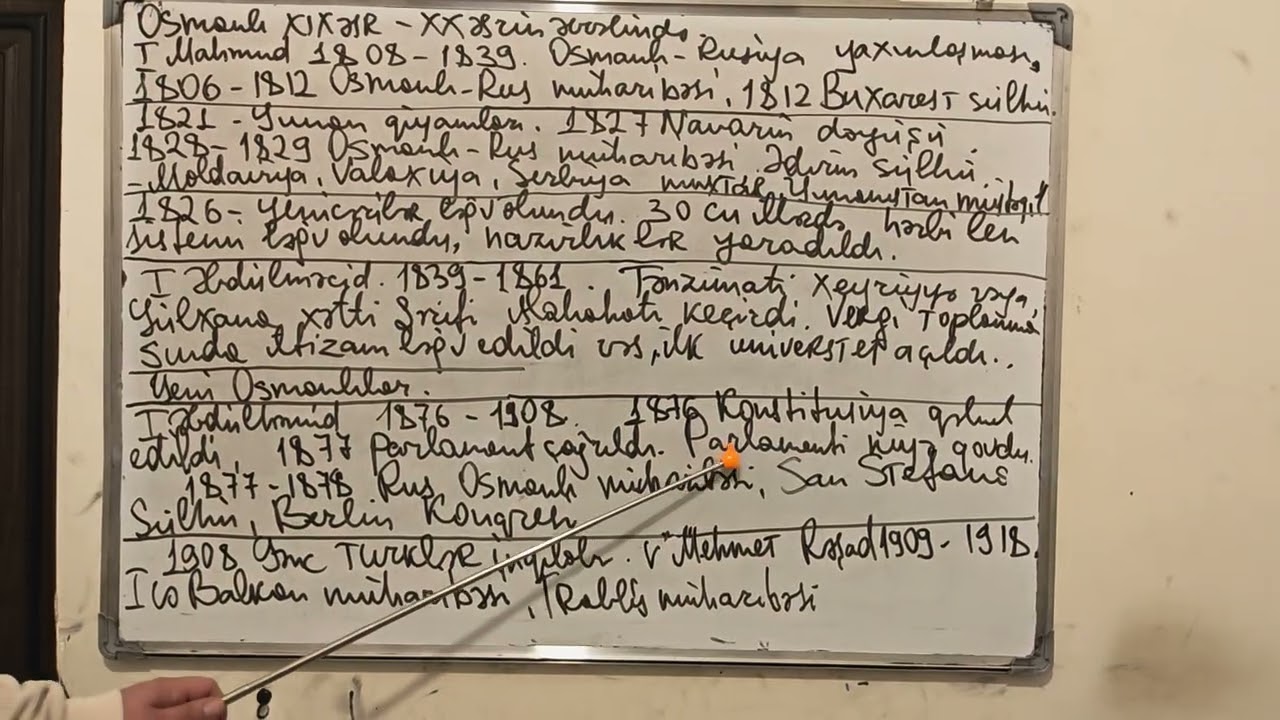 Osmanlı XIX əsr – XX əsrin əvvəlində.
I Mahmud 1808 – 1839. Osmanlı – Rusiya yaxınlaşması,
1806 – 1812 Osmanlı – Rus müharibəsi, 1812 Buxarest sülhü.
1821 – Yunan qiyamları. 1827 Navarin döyüşü.
1828 – 1829 Osmanlı – Rus müharibəsi Ədirnə sülhü.
– Moldaviya, Valaxiya, Serbiya muxtar, Yunanıstan müstəqil
1826 – Yeniçərilər ləğv olundu. 30 cu illərdə hərbi len
sistemi ləğv olundu, nazirliklər yaradıldı.
I Əbdülməcid. 1839 – 1861. Tənzimati Xeyriyyə vəya
Gülxanə xətti Şərifi islahatı keçirdi. Vergi toplanma
sında iltizam ləğv edildi və s, ilk universtet açıldı..
Yeni Osmanlılar.
I Əbdülhəmid 1876 – 1908. 1876 Konstitusiya qəbul
edildi, 1877 parlament çağrıldı. Parlamenti qovdu.
1877 – 1878 Rus Osmanlı müharibəsi, San Stefano
Sülhü, Berlin Konqresi
1908 Gənc Türklər inqilabı. V Mehmet Rəşad 1909 – 1918.
I cə Balkan müharibəsi, Trablis müharibəsi